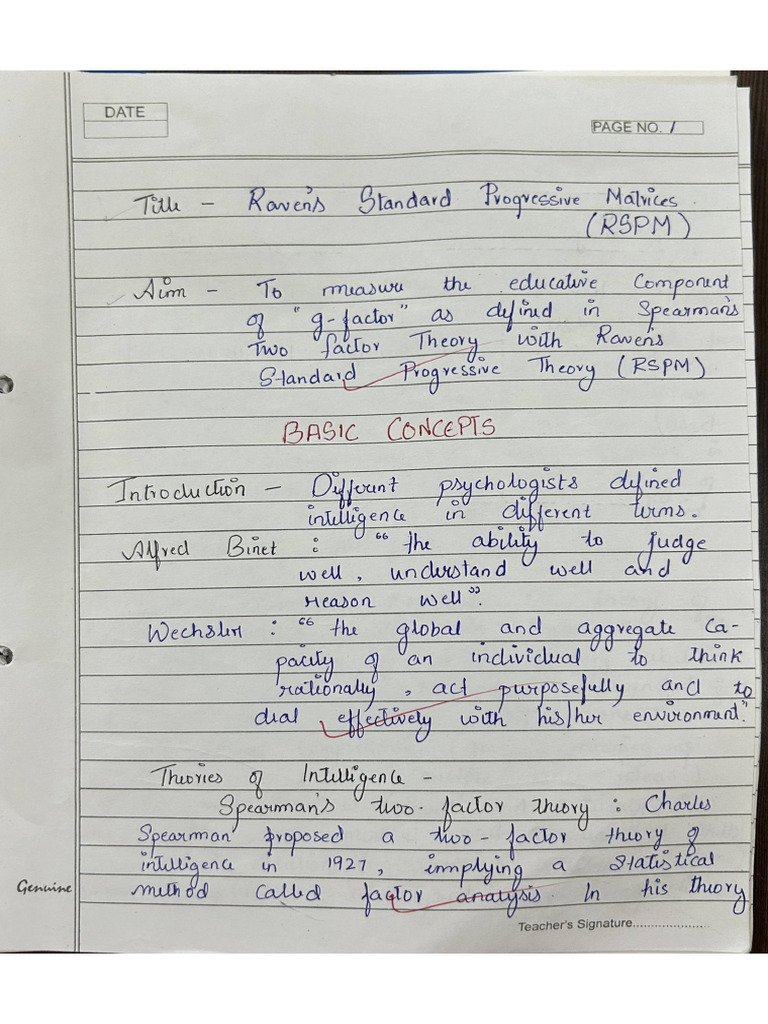 DATE
PAGE NO. 1
Title - Raven's Standard Progressive Matrices.
(RSPM)
Aim - To measure the educative component
of "g-factor" as defined in Spearman's
Two factor Theory with Raven's
Standard Progressive Theory (RSPM)
BASIC CONCEPTS
Introduction - Different psychologists defined
intelligence in different terms.
Alfred Binet : "the ability to judge
well, understand well and
reason well".
Wechsler : "the global and aggregate ca-
pacity of an individual to think
rationally, act purposefully and to
deal effectively with his/her environment."
Theories of Intelligence -
Spearman's two-factor theory : Charles
Spearman proposed a two-factor theory of
intelligence in 1927, implying a statistical
Genuine
method called factor analysis. In his theory
Teacher's Signature.....................